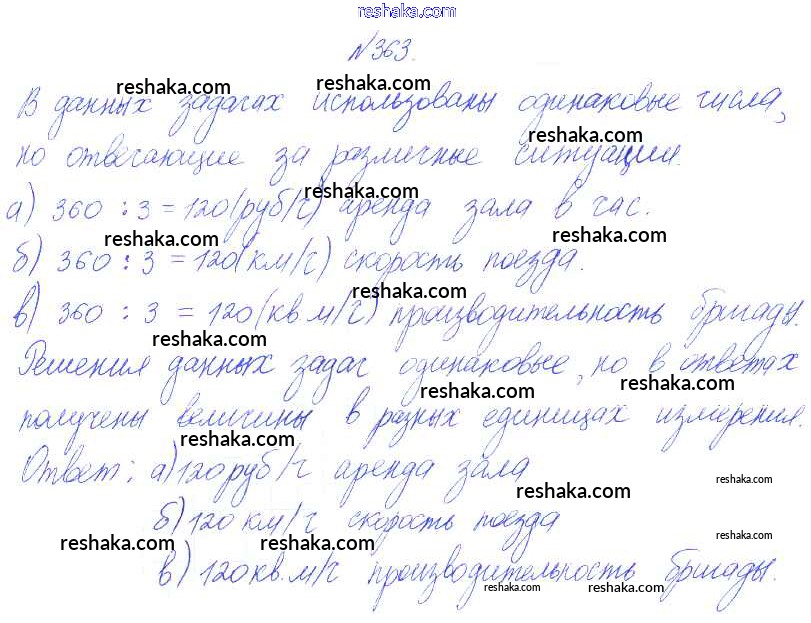 reshaka.com
№363.
reshaka.com reshaka.com
В данных задачах использованы одинаковые числа,
reshaka.com
но отвечающие за различные ситуации.
reshaka.com
а) 360 : 3 = 120(руб/ч) аренда зала в час.
reshaka.com reshaka.com
б) 360 : 3 = 120(км/ч) скорость поезда.
reshaka.com
в) 360 : 3 = 120(кв.м/ч) производительность бригады.
reshaka.com
Решения данных задач одинаковые, но в ответах
reshaka.com reshaka.com
получены величины в разных единицах измерения.
reshaka.com
Ответ: а)120руб/ч аренда зала
reshaka.com reshaka.com
б)120 км/ч скорость поезда
reshaka.com reshaka.com reshaka.com
в)120кв.м/ч производительность бригады.
reshaka.com reshaka.com